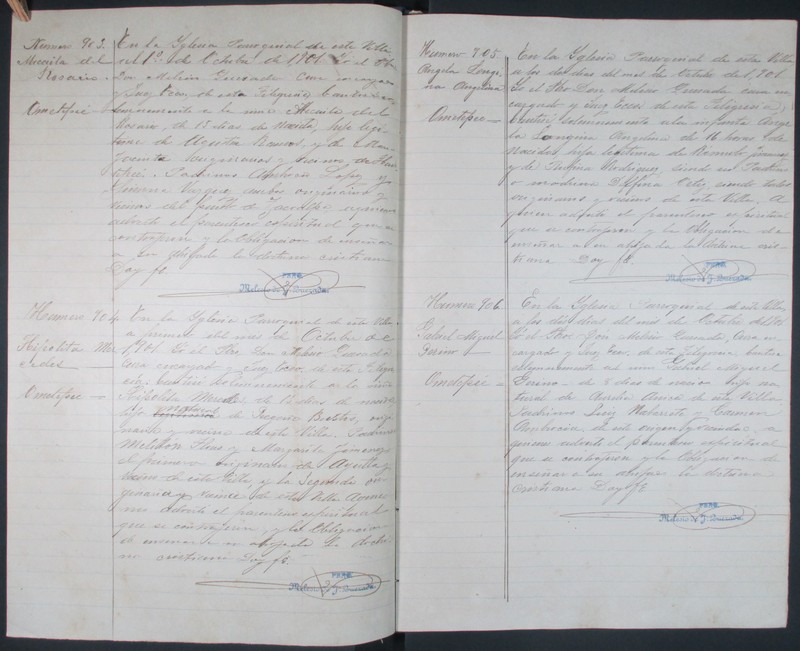 Numero 903.
Micaila del
Rosario.
Ometepec
En la Iglesia Parroquial de esta Villa
el 1º de Octubre de 1901. Yo el Pbro
Don Melesio Quesada Cura encargado
y Juez Ecco. de esta Feligresia Bautizé so-
lemnemente a la niña Micaila del
Rosario, de 15 dias de nacida, hija legi-
tima de Agustin Ramos, y de
originarios y vecinos de
Padrinos Ambrosio Lopez y
Vazquez, ambos originarios y
vecinos del Pueblo de quienes
advertí el parentesco espiritual que
contrajeron y la obligacion de enseñar
a su ahijada la doctrina cristiana
Doy fé.
PBRO.
Melesio de J. Quesada.
Numero 904
Hipolita Mer
cedes
Ometepec
En la Iglesia Parroquial de esta Villa
a primero del mes de Octubre de
1901. Yo el Pbro Don Melesio Quesada
Cura encargado y Juez Ecco. de esta Feligre
sia, Bautizé solemnemente a la niña
Hipolita Mercedes de 15 dias de nacida
hija natural de Bustos, origi
naria y vecina de esta Villa. Padrinos
Meliton y Margarita Jimenez
el primero originario de Ayutla y
vecino de esta Villa, y la Segunda ori
ginaria y vecina de esta Villa
advertí el parentesco espiritual
que se contrajeron, y la Obligacion
de enseñar a su ahijada la doctri
na cristiana Doy fé.
PBRO.
Melesio de J. Quesada.
Numero 905
Angela Longi
na Angelina
Ometepec
En la Iglesia Parroquial de esta Villa
a los dos dias del mes de Octubre de 1,901.
Yo el Pbro Don Melesio Quesada cura en
cargado y Juez Ecco. de esta Feligresia,
Bautizé solemnemente a la infanta Ange
la Longina Angelina de 16 horas de
nacida, hija legitima de Romulo Jimenez
y de Rufina Rodriguez, siendo su Padrino
o madrina Delfina Ortiz, siendo todos
originarios y vecinos de esta Villa, A
quien advertí el parentesco espiritual
que se contrajeron y la Obligacion de
enseñar a su ahijada la doctrina cris
tiana Doy fé.
PBRO.
Melesio de J. Quesada.
Numero 906
Rafael Miguel
Ometepec
En la Iglesia Parroquial de esta Villa
a los dos dias del mes de Octubre del 901
Yo el Pbro. Don Melesio Quesada, Cura en
cargado y Juez Ecco. de esta Feligresia, bautizé
solemnemente al niño Rafael Miguel
de 3 dias de nacido hijo na
tural de Aurelia de esta Villa
Padrinos Luis y Carmen
de este origen y vecindad, a
quienes advertí el parentesco espiritual
que se contrajeron y la Obligacion de
enseñar a su ahijado la doctrina
Cristiana Doy fé
PBRO.
Melesio de J. Quesada.